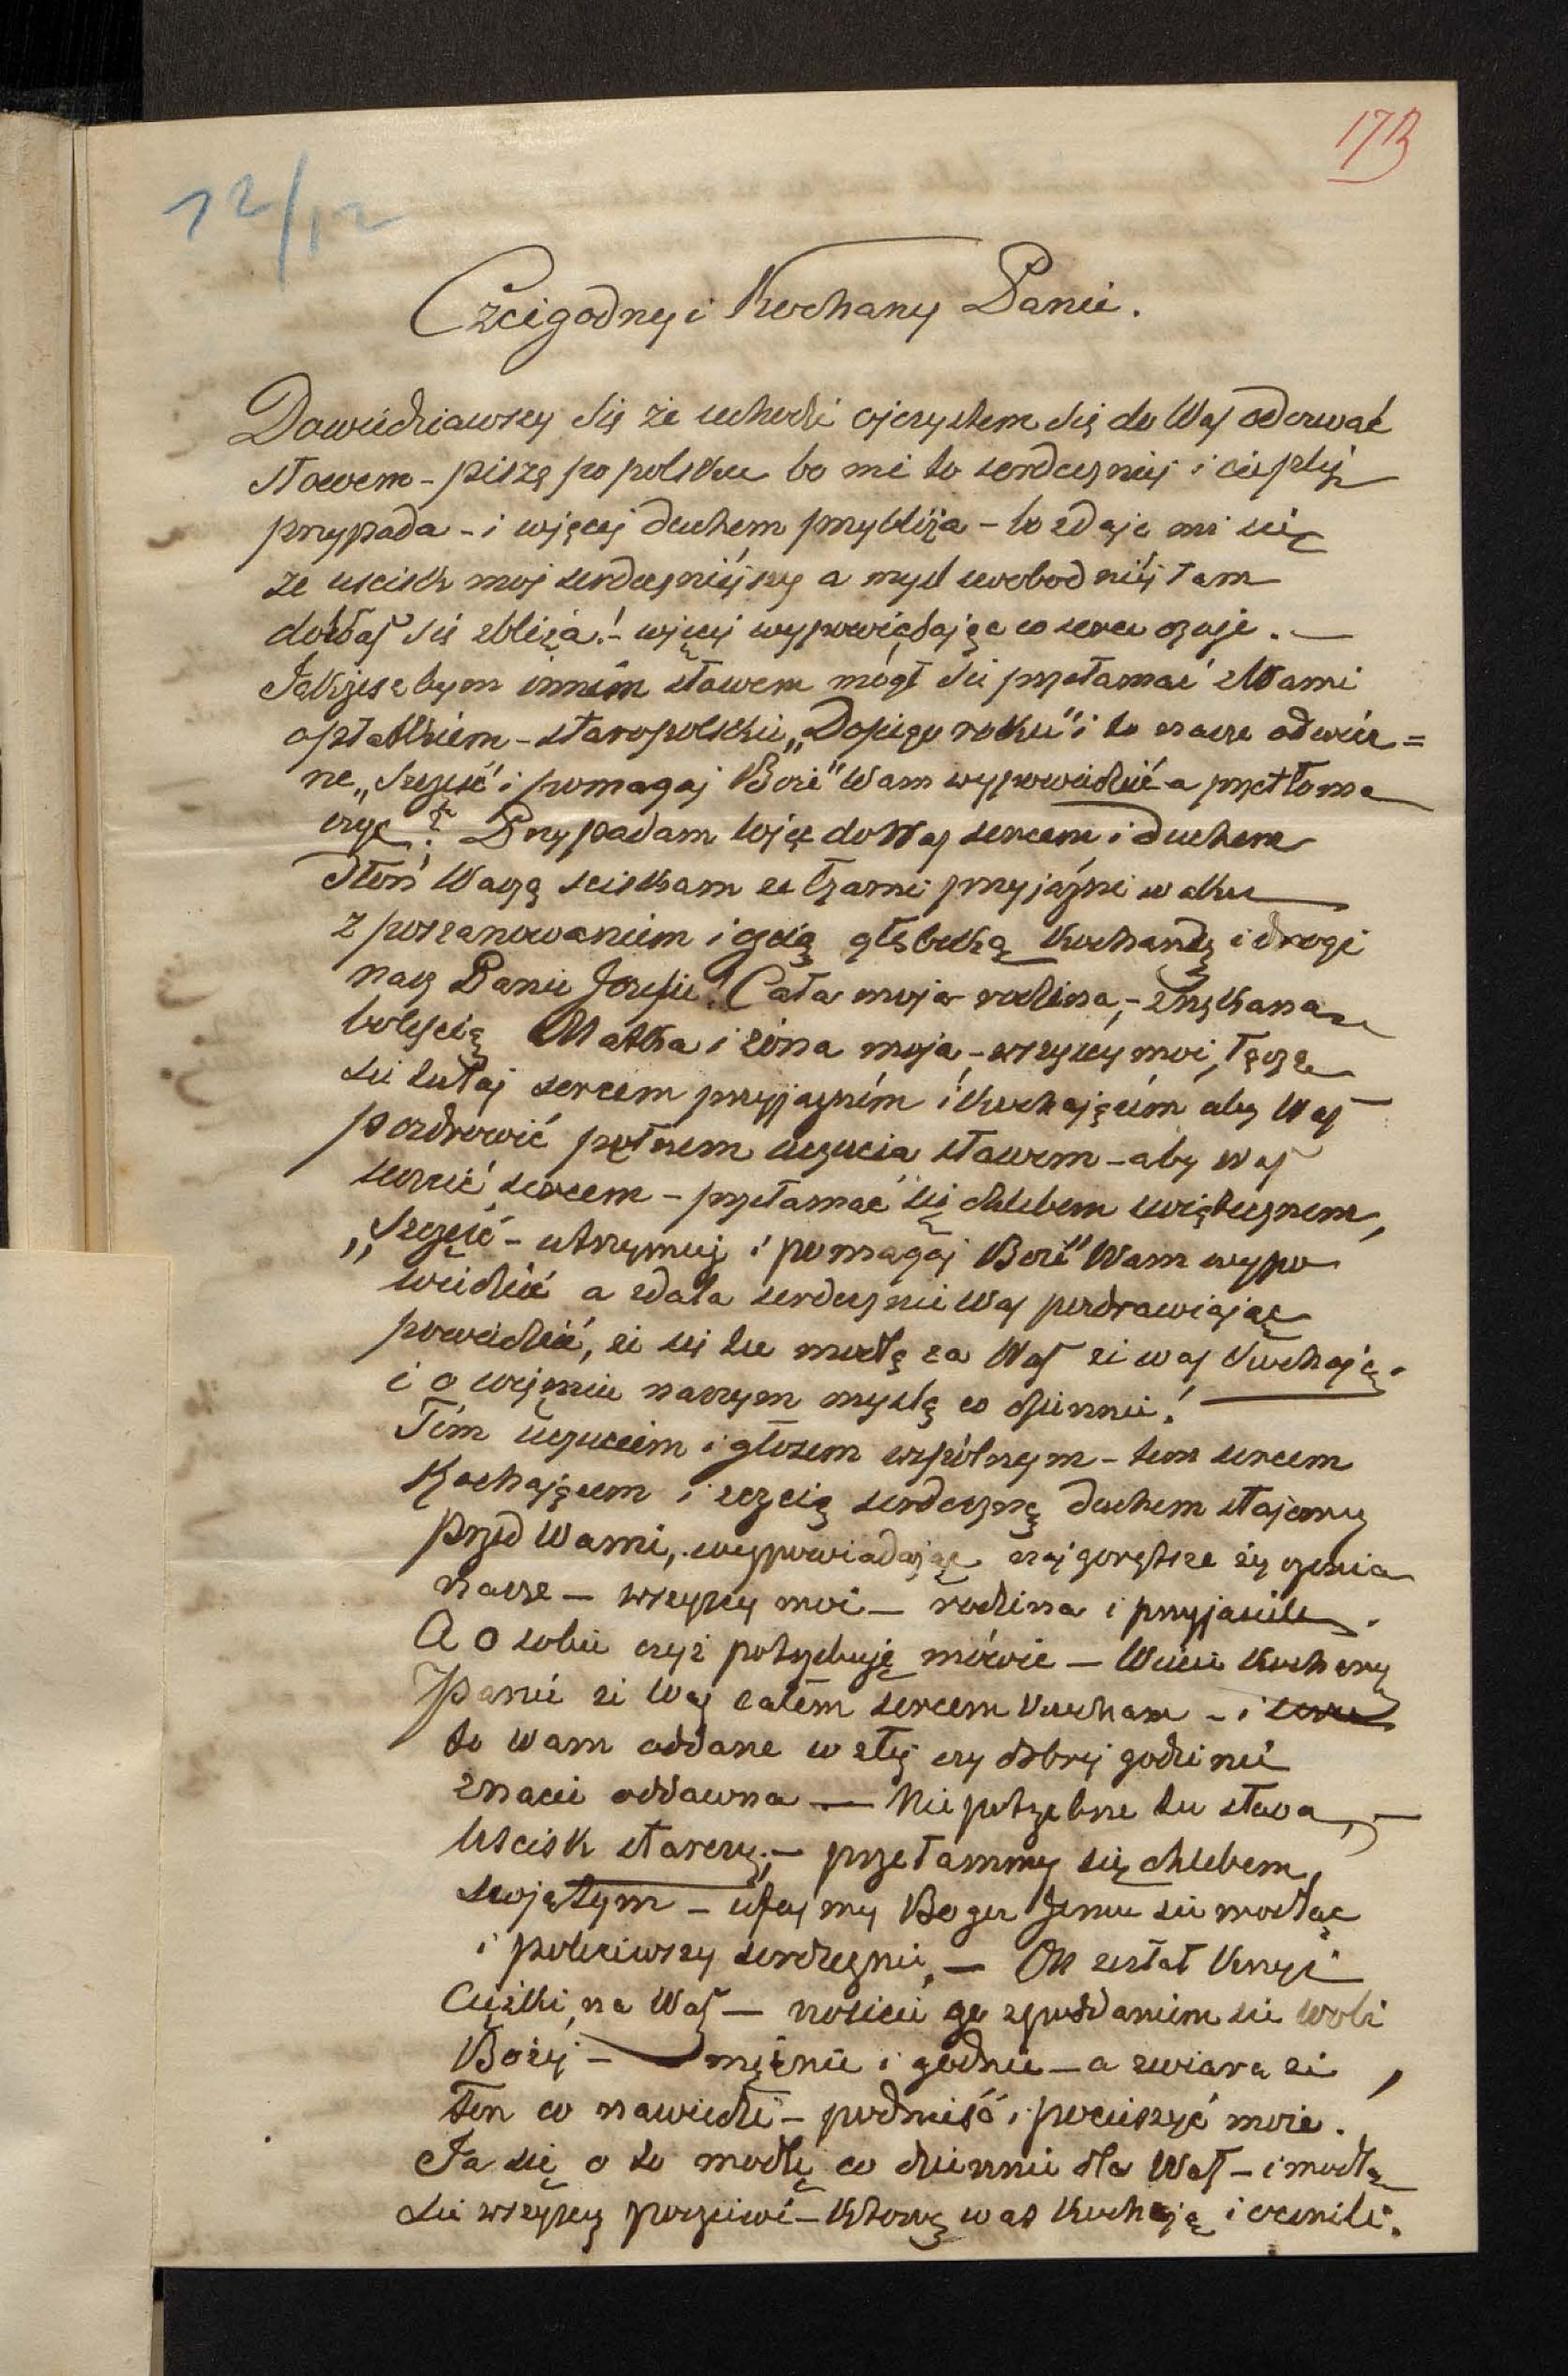 173
12/12
Czcigodny i Kochany Panie.
Dowiedziawszy się że uchodzi ojczystem się do Was odezwać
słowem - piszę po polsku bo mi to serdeczniej i cieplej
przypada - i więcej duchem przybliża - bo zdaje mi się
że uścisk moj serdeczniejszy a myśl swobodniej tam
do Was się zbliża! - więcej wypowiadając co serce czuje. —
Jakżesz bym innem słowem mógł się przełamać z Wami
opłatkiem - staropolskie „Dosiego roku" i to nasze odwiecz=
ne „Szczęść i pomagaj Boże" Wam wypowiedzieć a przetłoma
czyć? Przypadam więc do Was sercem i duchem
dłoń Waszą sciskam ze łzami przyjaźni w oku
z poszanowaniem i czcią głęboką Kochany i drogi
nasz Panie Józefie! Cała moja rodzina, - znękana
boleścią Matka i żona moja, - wszyscy moi, łączą
się tutaj sercem przyjazném i kochającém aby Was
pozdrowić pełnem uczucia słowem - aby Was
uczcić sercem - przełamać się chlebem świątecznem,
„Szczęść - utrzymuj i pomagaj Boże" Wam wypo
wiedzieć a zdala serdecznie Was pozdrawiając
powiedzieć, że się tu modlą za Was że Was kochają.
i o więźniu naszym myślą co dziennie!
Tém uczuciem i głosem wspólnym - tem sercem
kochającem i czcią serdeczną duchem stajemy
przed Wami, wypowiadając najgorętsze życzenia
nasze — wszyscy moi — rodzina i przyjaciele.
A o sobie czyż potrzebuję mówić — Wiecie Kochany
Panie że Was całem sercem kocham - i serce
to Wam oddane w złej czy dobrej godzinie
znacie oddawna — Nie potrzebne tu słowa, —
Uścisk starczy; — przełammy się chlebem
swiętym — ufajmy Bogu Jemu się modląc
i poleciwszy serdecznie, — On zesłał krzyż
Ciężki na Was — nosicie go z poddaniem się woli
Bożej — mężnie i godnie — a z wiarą że,
ten co nawiedził — podnieść i pocieszyć może.
Ja się o to modlę co dziennie dla Was - i modlą
się wszyscy poczciwi - którzy was kochają i ocenili.